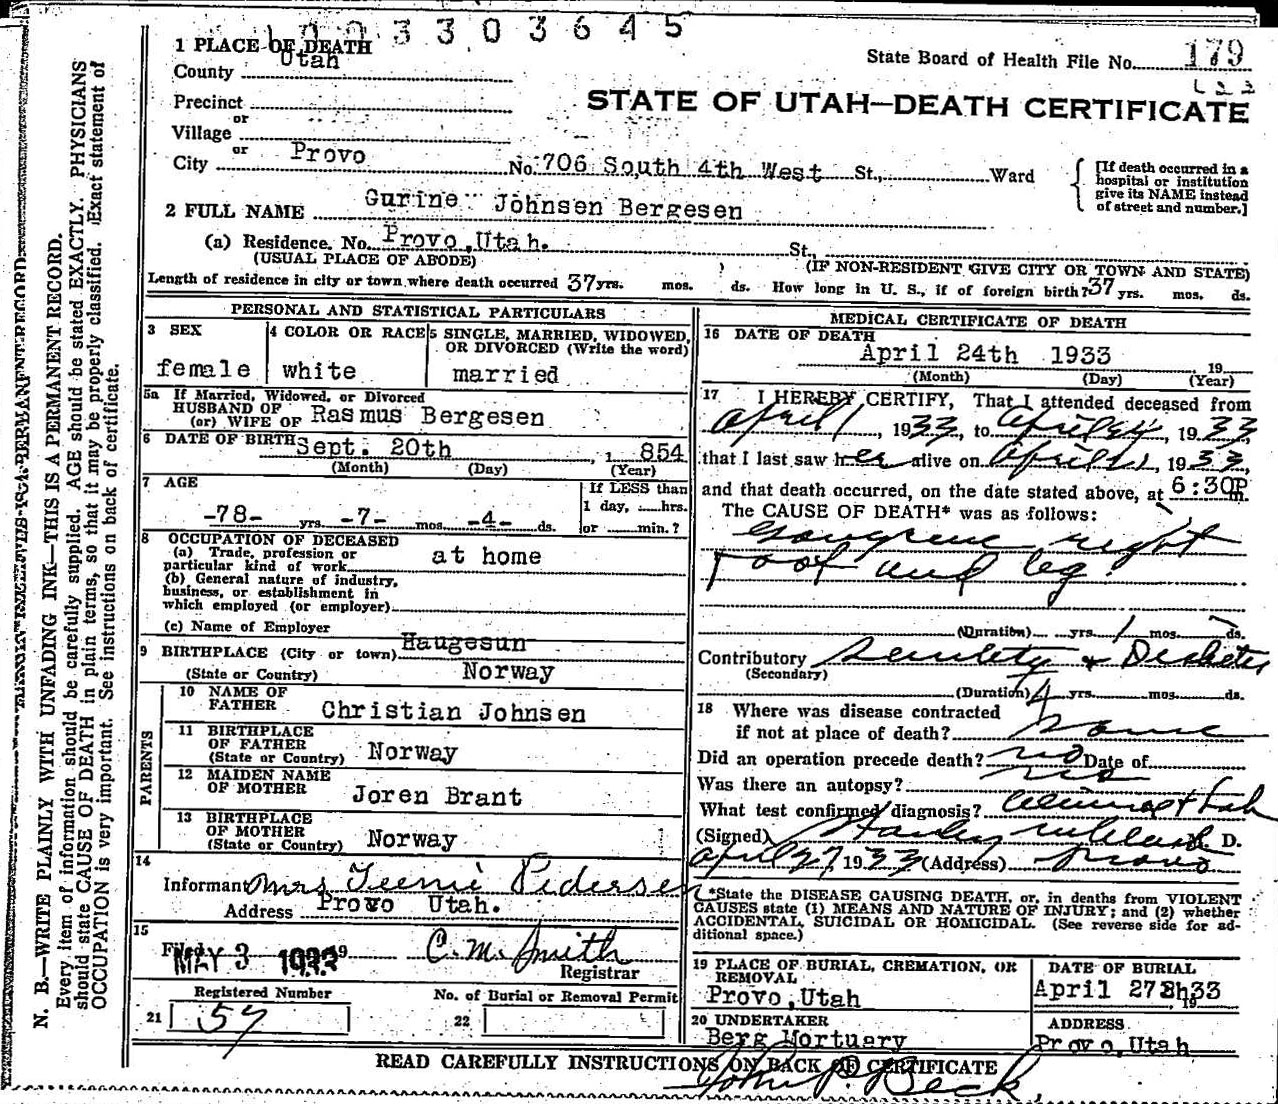 003303645
1 PLACE OF DEATH
State Board of Health File No. 179
County Utah
STATE OF UTAH—DEATH CERTIFICATE
Precinct
or
Village
or
City Provo No. 706 South 4th West St., Ward
[If death occurred in a hospital or institution give its NAME instead of street and number.]
2 FULL NAME Gurine Johnsen Bergesen
(a) Residence. No. Provo, Utah. St.,
(USUAL PLACE OF ABODE) (IF NON-RESIDENT GIVE CITY OR TOWN AND STATE)
Length of residence in city or town where death occurred 37 yrs. mos. ds. How long in U. S., if of foreign birth? 37 yrs. mos. ds.
PERSONAL AND STATISTICAL PARTICULARS
3 SEX
female
4 COLOR OR RACE
white
5 SINGLE, MARRIED, WIDOWED, OR DIVORCED (Write the word)
married
5a If Married, Widowed, or Divorced
HUSBAND OF
(or) WIFE OF Rasmus Bergesen
6 DATE OF BIRTH Sept. 20th, 1 854
(Month) (Day) (Year)
7 AGE
-78- yrs. -7- mos. -4- ds.
If LESS than
1 day, ......hrs.
or ......min.?
8 OCCUPATION OF DECEASED
(a) Trade, profession or
particular kind of work at home
(b) General nature of industry,
business, or establishment in
which employed (or employer)
(c) Name of Employer
9 BIRTHPLACE (City or town) Haugesun
(State or Country) Norway
PARENTS
10 NAME OF
FATHER Christian Johnsen
11 BIRTHPLACE
OF FATHER
(State or Country) Norway
12 MAIDEN NAME
OF MOTHER Joren Brant
13 BIRTHPLACE
OF MOTHER
(State or Country) Norway
14
Informant Mrs Teenie Pedersen
Address Provo Utah.
15
Filed MAY 3 1933 19 C. M. Smith
Registrar
Registered Number
21 57
No. of Burial or Removal Permit
22
MEDICAL CERTIFICATE OF DEATH
16 DATE OF DEATH
April 24th 1933 19
(Month) (Day) (Year)
17 I HEREBY CERTIFY, That I attended deceased from
April 1, 1933, to April 24, 1933,
that I last saw her alive on April, 1933,
and that death occurred, on the date stated above, at 6:30P m.
The CAUSE OF DEATH* was as follows:
Gangrene right
foot and leg.
(Duration) yrs. 1 mos. ds.
Contributory Senility & Diabetes
(Secondary)
(Duration) 4 yrs. mos. ds.
18 Where was disease contracted
if not at place of death? Home
Did an operation precede death? no Date of
Was there an autopsy? no
What test confirmed diagnosis? Clinical & Lab
(Signed) M. D.
April 27, 1933 (Address) Provo
*State the DISEASE CAUSING DEATH, or, in deaths from VIOLENT
CAUSES state (1) MEANS AND NATURE OF INJURY; and (2) whether
ACCIDENTAL, SUICIDAL OR HOMICIDAL. (See reverse side for ad-
ditional space.)
19 PLACE OF BURIAL, CREMATION, OR
REMOVAL
Provo, Utah
DATE OF BURIAL
April 27th 33 19
20 UNDERTAKER
Berg Mortuary
ADDRESS
Provo, Utah
READ CAREFULLY INSTRUCTIONS ON BACK OF CERTIFICATE
John P. Beck
N. B.—WRITE PLAINLY WITH UNFADING INK—THIS IS A PERMANENT RECORD.
Every item of information should be carefully supplied. AGE should be stated EXACTLY. PHYSICIANS
should state CAUSE OF DEATH in plain terms, so that it may be properly classified. Exact statement of
OCCUPATION is very important. See instructions on back of certificate.